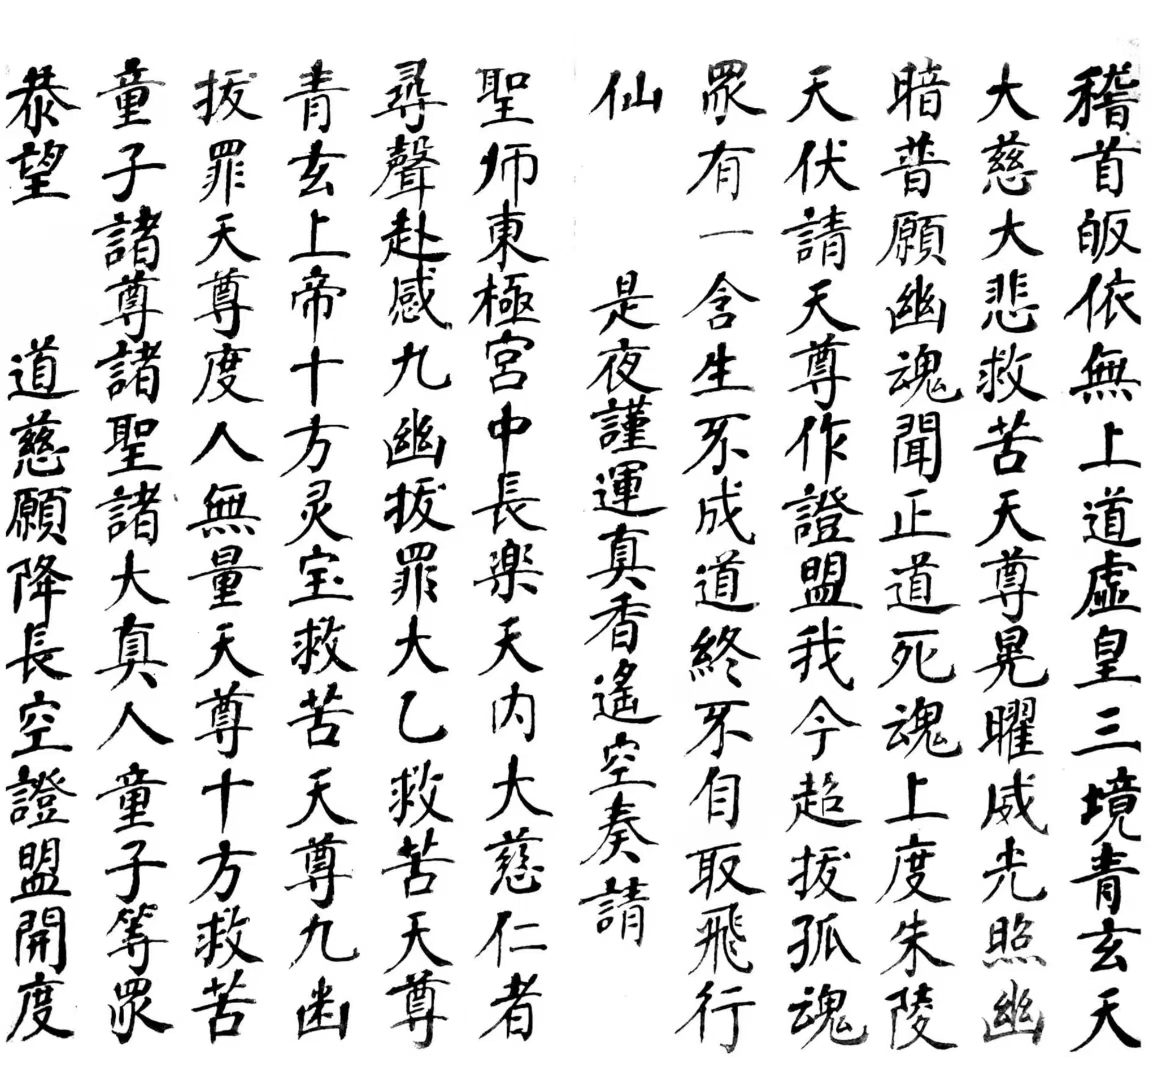 稽首皈依無上道虛皇三境青玄天
大慈大悲救苦天尊晃曜威光照幽
暗普願幽魂聞正道死魂上度朱陵
天伏請天尊作證盟我今超拔孤魂
眾有一含生不成道終不自取飛行
仙　　是夜謹運真香遙空奏請
聖师東極宮中長楽天内大慈仁者
尋聲赴感九幽拔罪大乙救苦天尊
青玄上帝十方灵宝救苦天尊九幽
拔罪天尊度人無量天尊十方救苦
童子諸尊諸聖諸大真人童子等眾
恭望　　道慈願降長空證盟開度